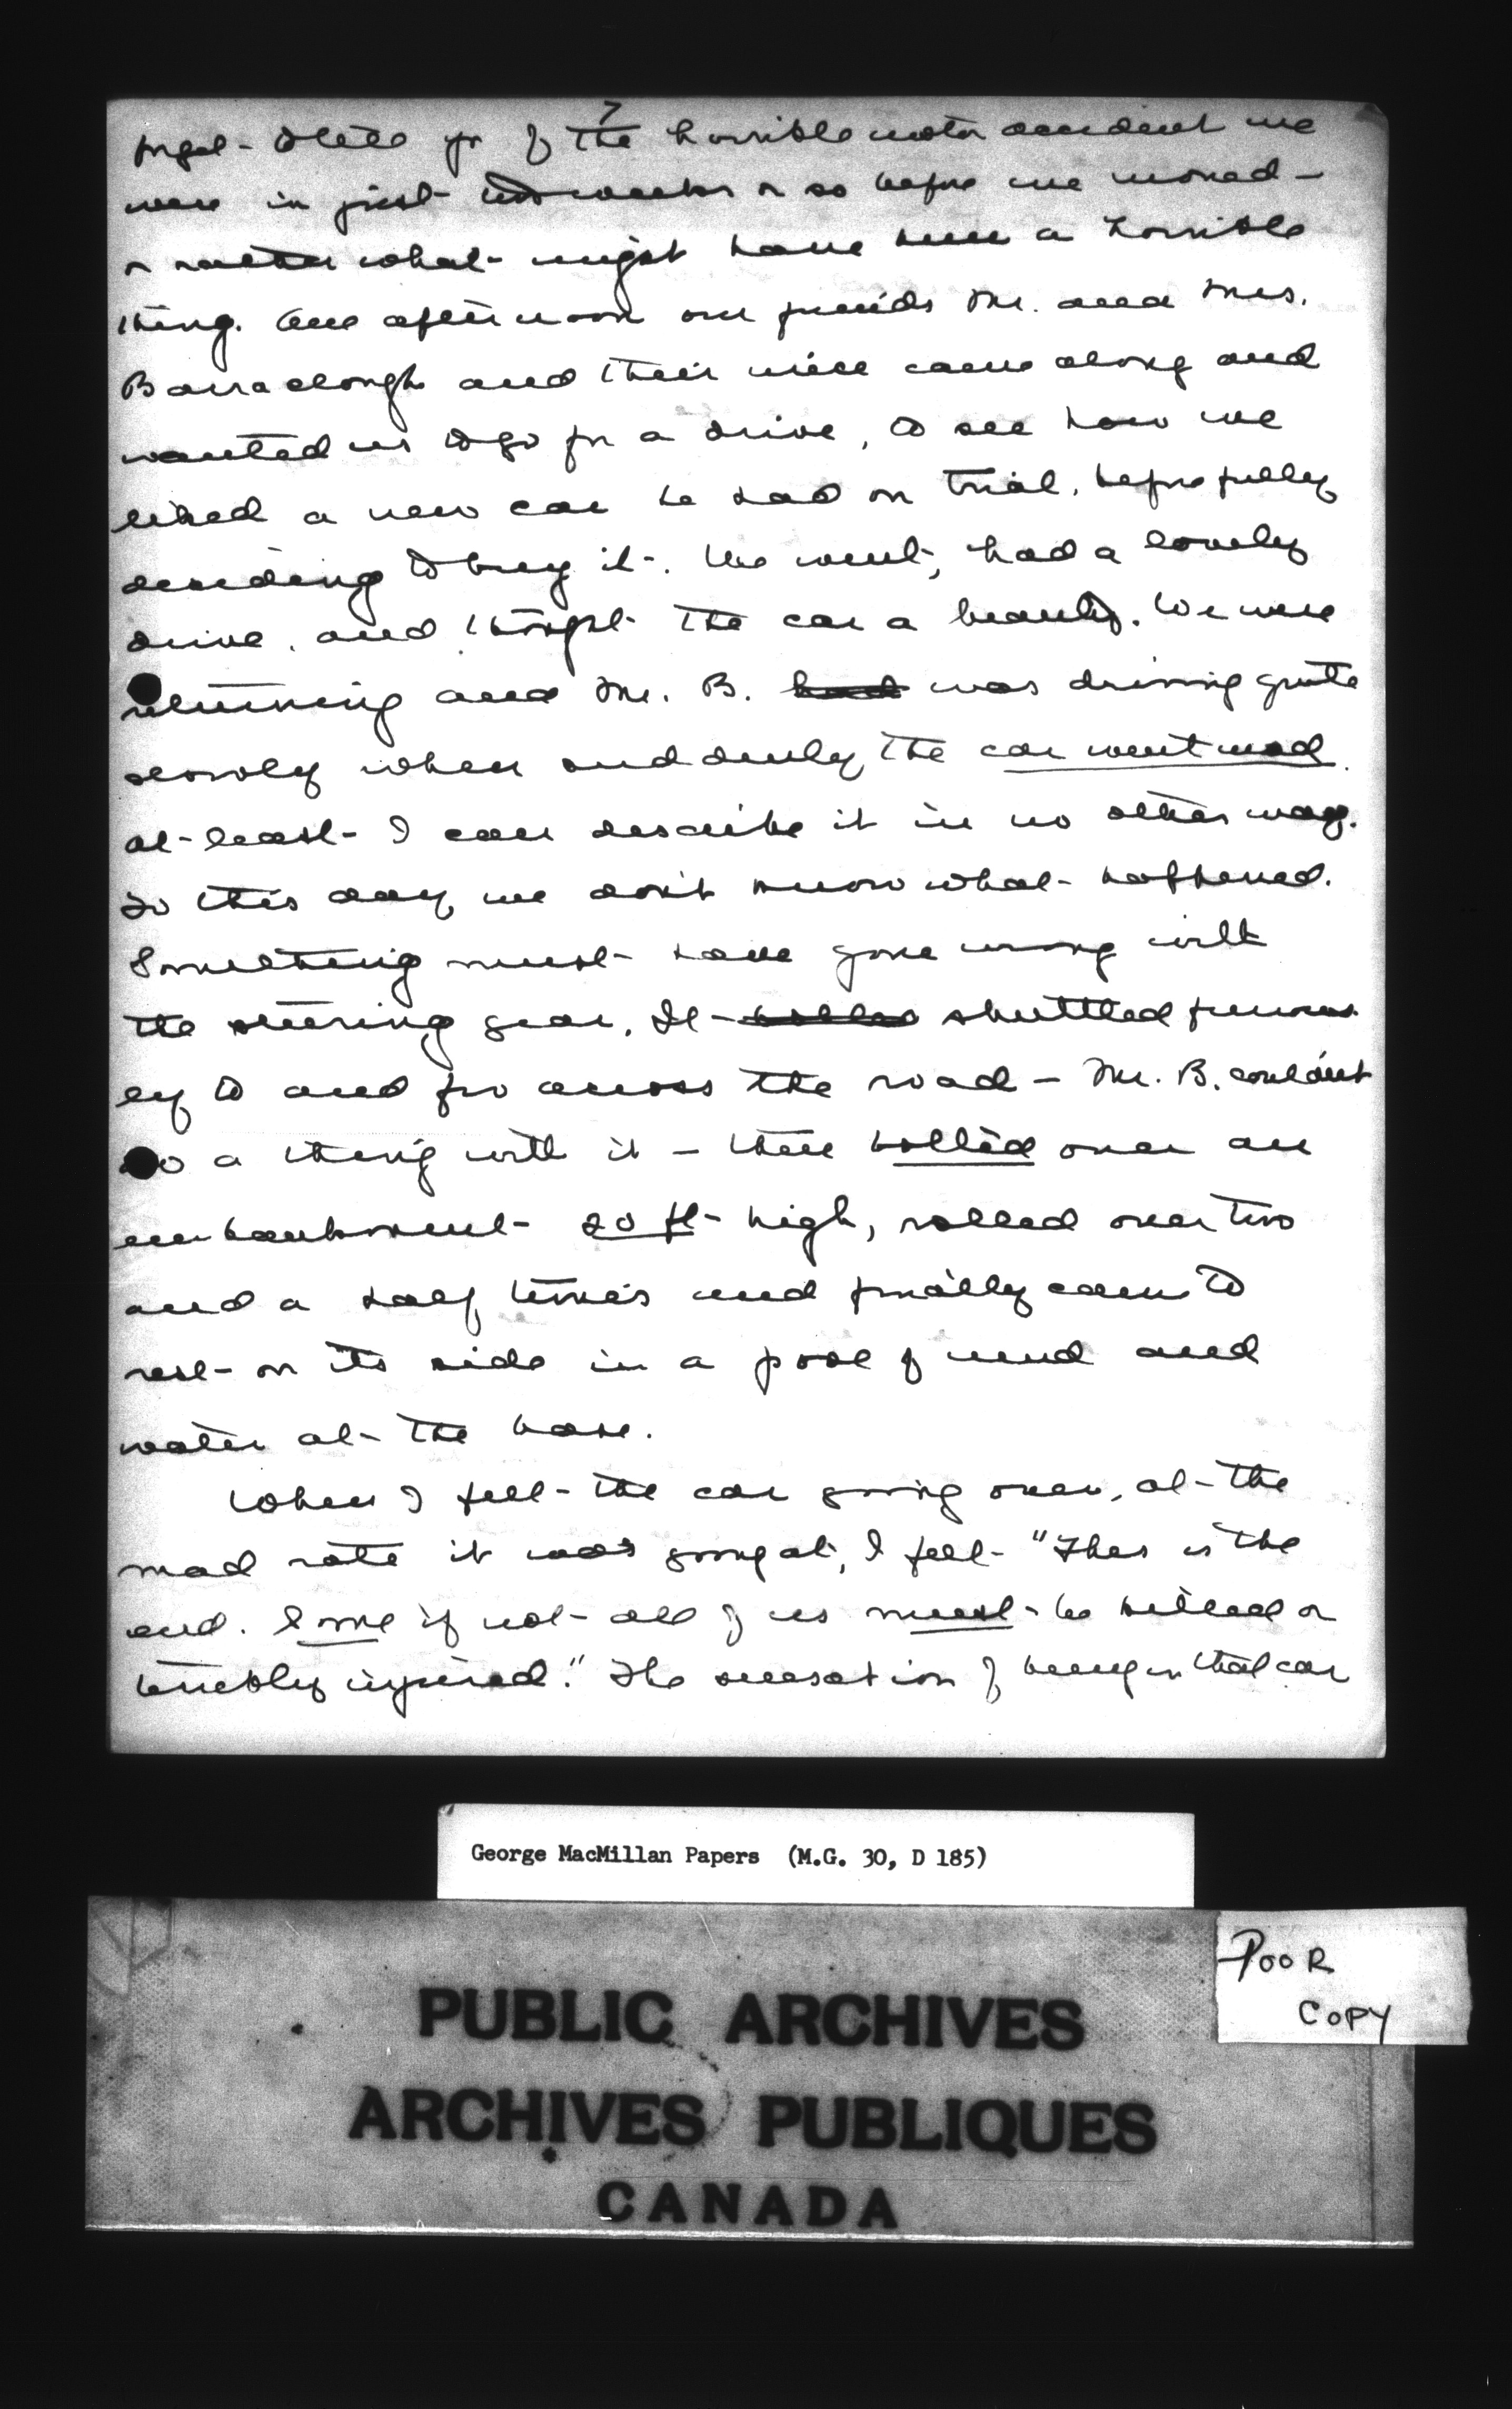 7
forget to tell you of the horrible motor accident we
were in just two weeks or so before we moved –
or rather what might have been a horrible
thing. One afternoon our friends Mr. and Mrs.
Barraclough and their niece came along and
wanted us to go for a drive, to see how we
liked a new car he had on trial, before fully
deciding to buy it. We went, had a lovely
drive, and thought the car a beauty. We were
returning and Mr. B. had was driving quite
slowly when suddenly the car went mad.
at least I can describe it in no other way.
To this day we don't know what happened.
Something must have gone wrong with
the steering gear. It bolted shuttled furious
ly to and fro across the road – Mr. B. couldn't
do a thing with it – then bolted over an
embankment 20 ft high, rolled over two
and a half times and finally came to
rest on its side in a pool of mud and
water at the base.
When I felt the car going over, at the
mad rate it was going at, I felt "This is the
end. Some if not all of us must be killed or
terribly injured." The sensation of being in that car
George MacMillan Papers (M.G. 30, D 185)
POOR
COPY
PUBLIC ARCHIVES
ARCHIVES PUBLIQUES
CANADA